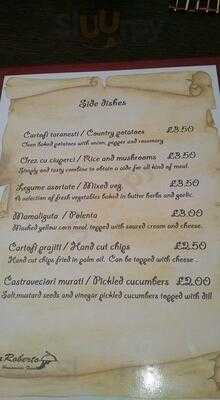 Side dishes
Cartofi taranesti / Country potatoes £3.50
Oven baked potatoes with onion, pepper and rosemary
Orez cu ciuperci / Rice and mushrooms £3.50
Simply and tasty combine to obtain a side for all kind of meal.
Legume asortate / Mixed veg. £3.50
A selection of fresh vegetables baked in butter herbs and garlic.
Mamaliguta / Polenta £3.00
Mashed yellow corn meal, topped with soured cream and cheese.
Cartofi prajiti / Hand cut chips £2.50
Hand cut chips fried in palm oil. Can be topped with cheese.
Castraveciori murati / Pickled cucumbers £2.00
Salt, mustard seeds and vinegar pickled cucumbers topped with dill
Roberto